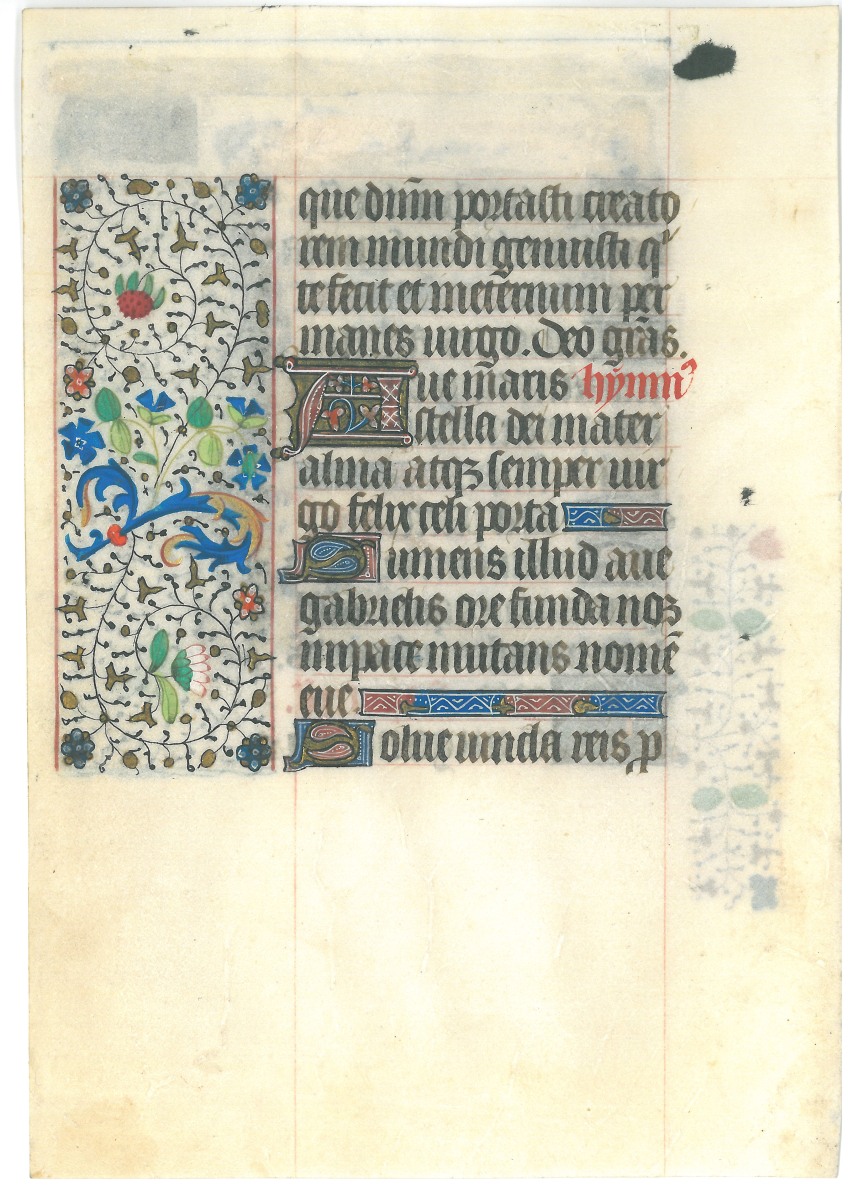 que dñm portasti creato
rem mundi genuisti q̇
te fecit et ineternum per
manes uirgo. Deo gr̃as.
Aue maris hỹmnꝰ
stella dei mater
alma atqꝫ semper uir
go felix celi porta
Sumens illud aue
gabrielis ore funda nos
in pace mutans nomẽ
eue
Solue uincla reis p̱